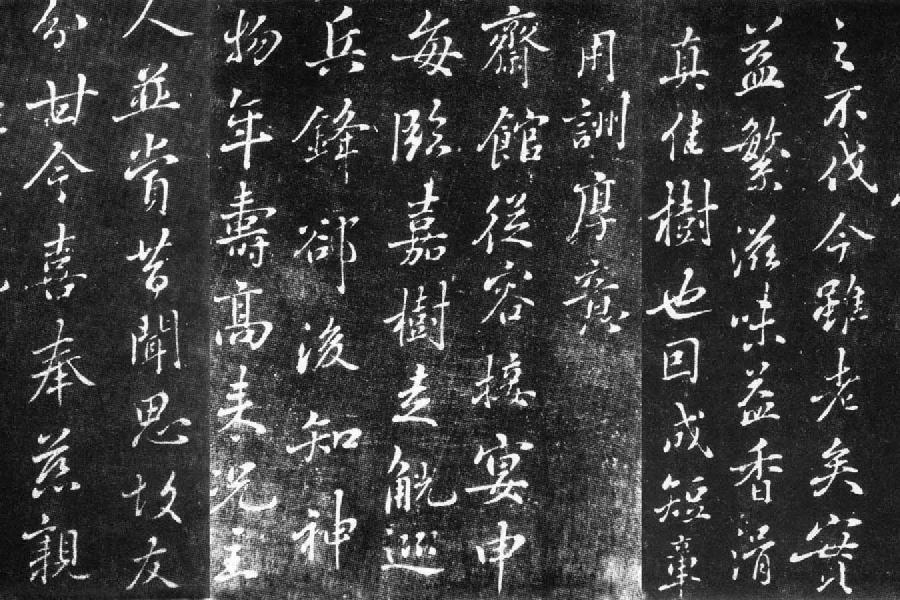 之不伐今雖老矣實
益繁滋味益香滑
真佳樹也因成短章
用詶厚意
齋館從容接宴申
每臨嘉樹走觥巡
兵鋒郤後知神
物年壽高来況主
人並賞昔聞思故友
分甘今喜奉慈親